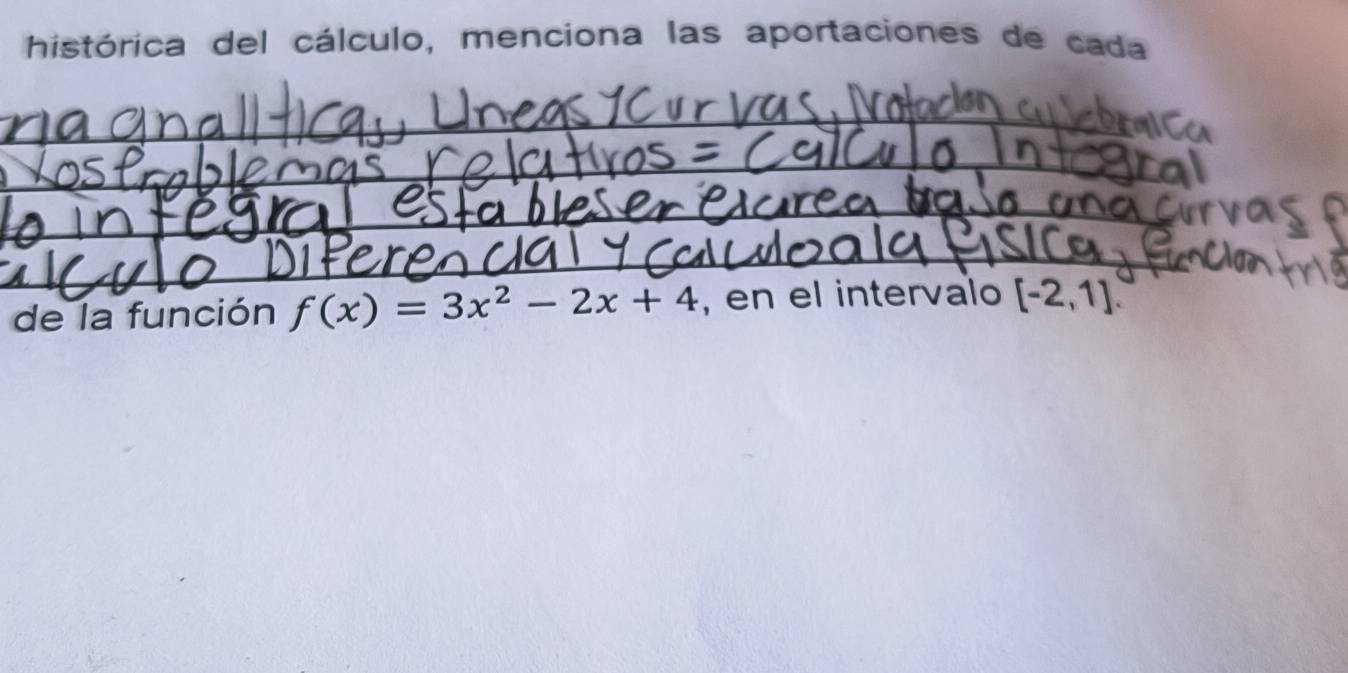 histórica del cálculo, menciona las aportaciones de cada
ria analitica, Lineas y curvas, Notacion
los Problemas relativos = Calculo Integral
lo integral estableser el area bajo una curvas
alculo Diferencial y calculo a la Fisica, funcion trig
de la función f(x) = 3x² − 2x + 4, en el intervalo [-2,1].